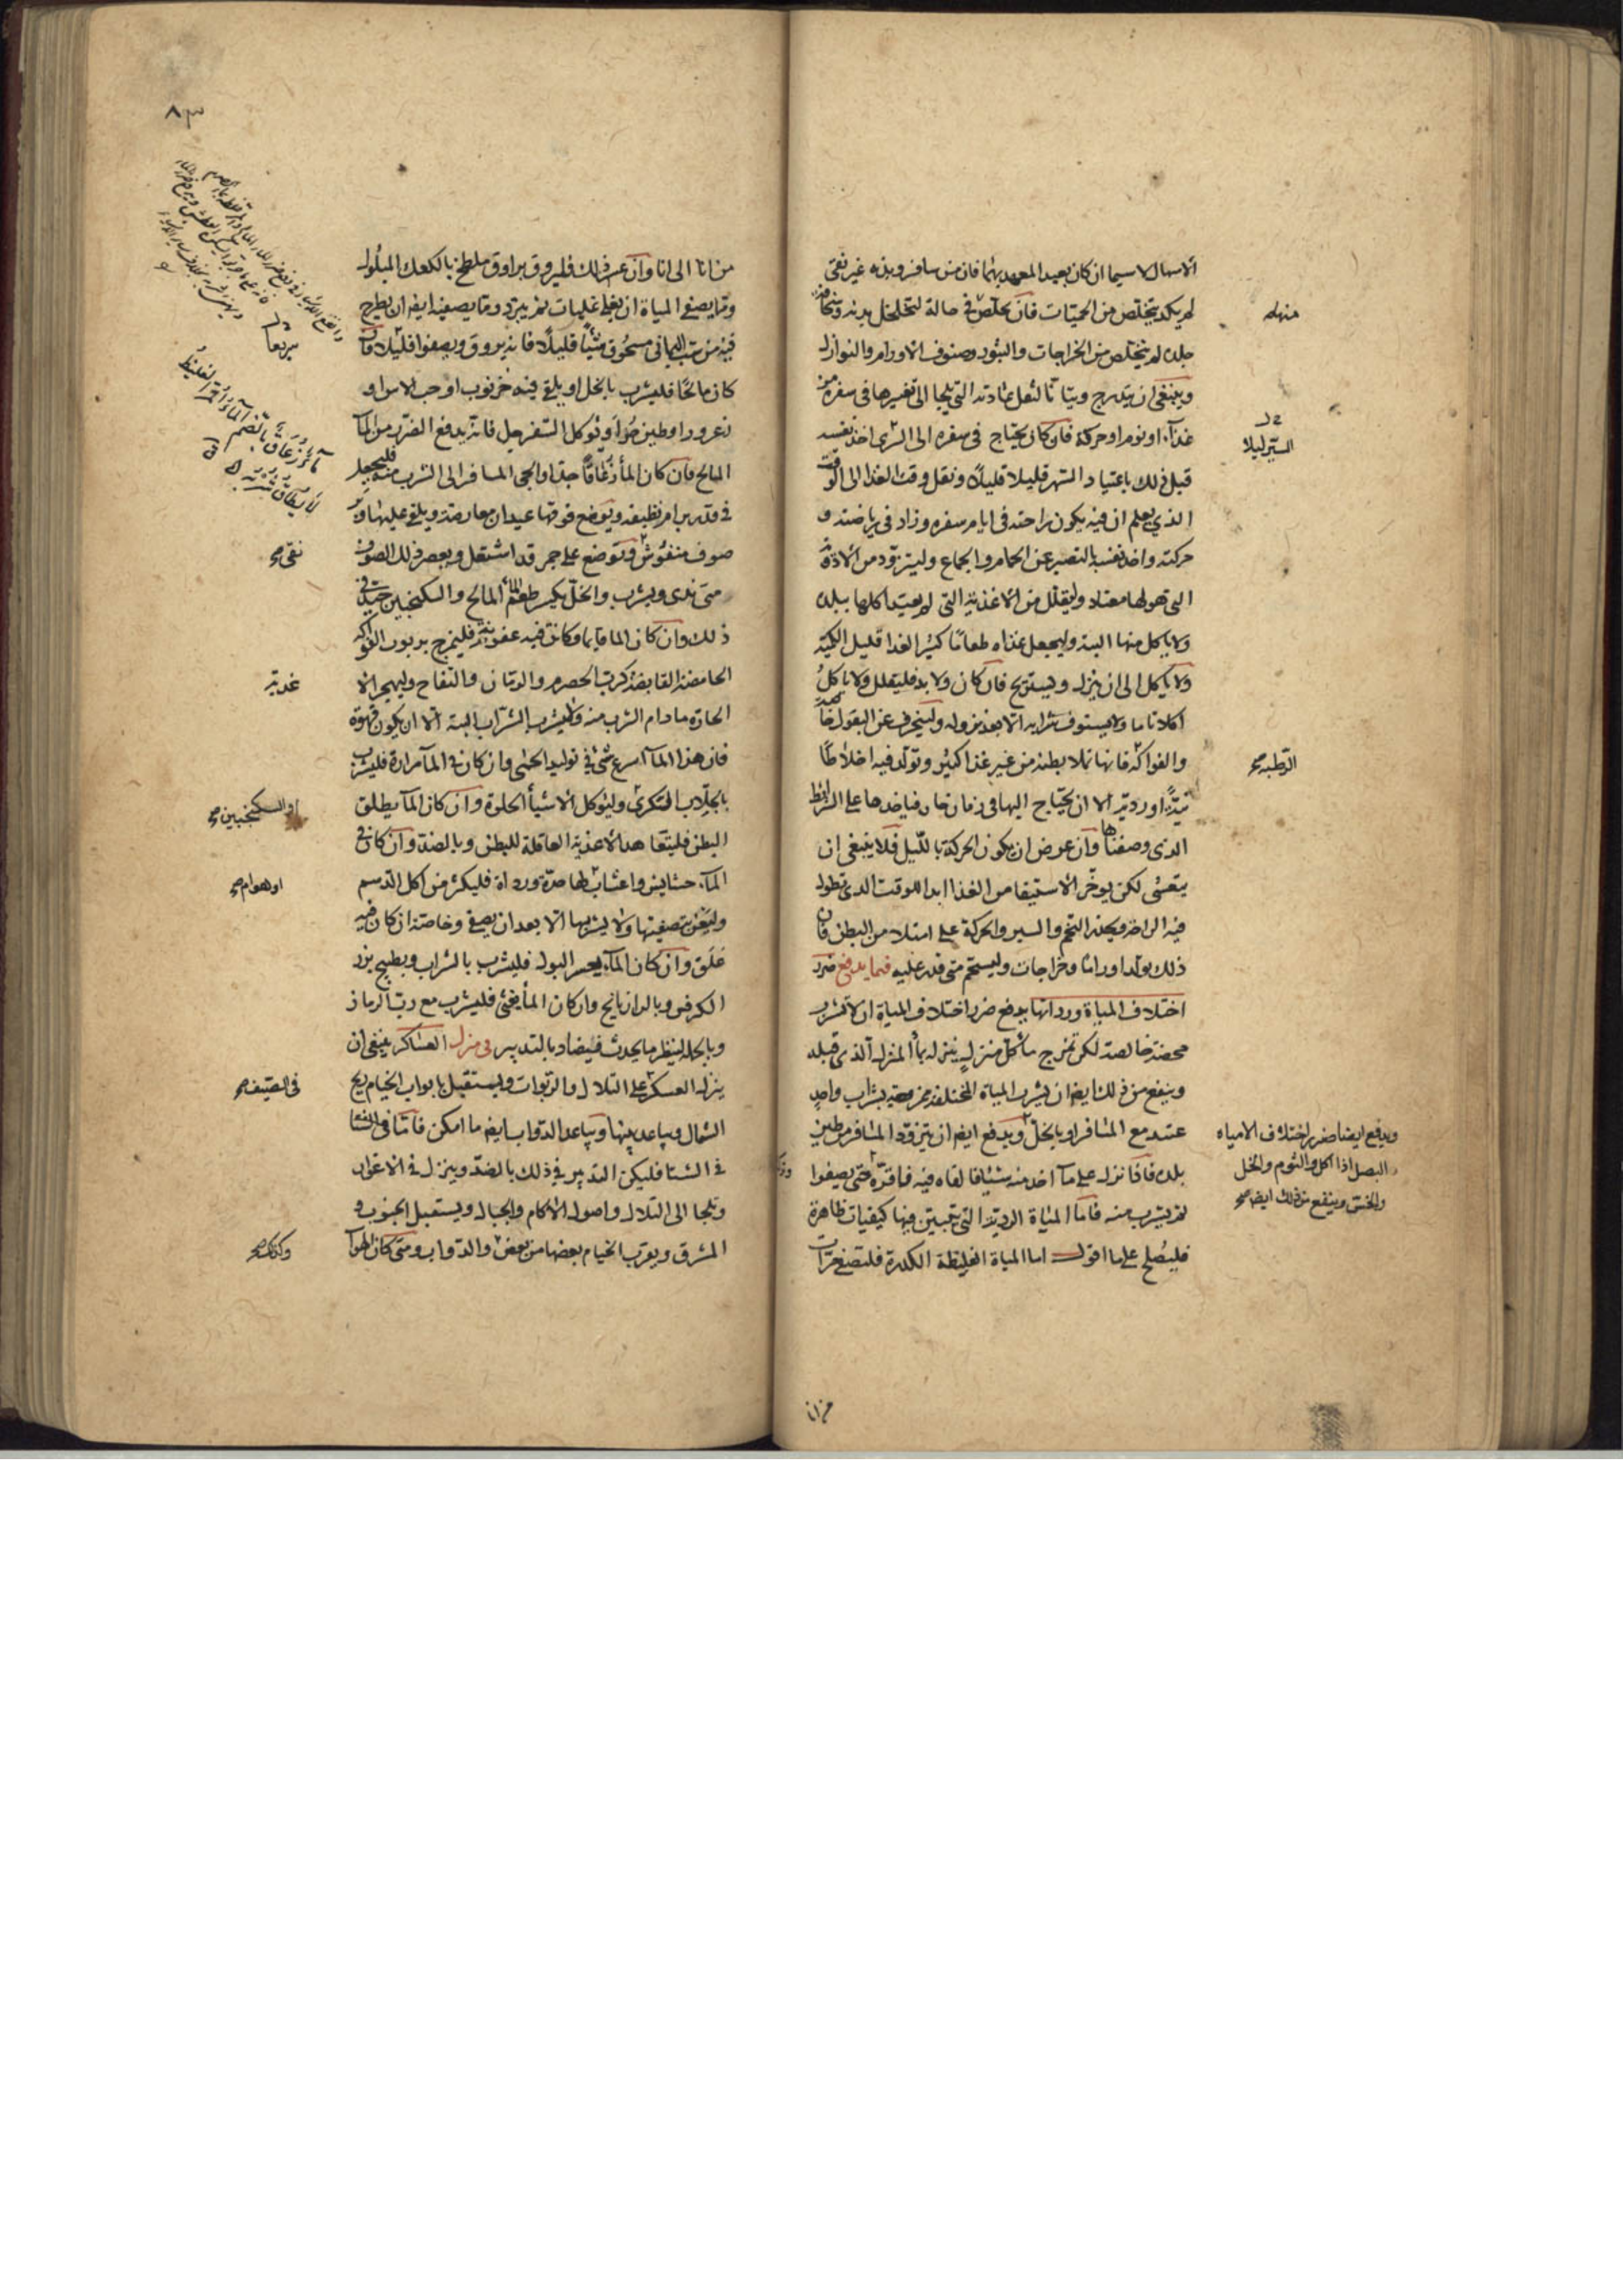 الاسهال لا سيما ان كان بعيد العهد بهما فان من سافر وبدنه غير نقى
لم يكد يتخلص من الحميات فان تخلص فى حالة لتخلخل بدنه وسخافة
جلده لم يتخلص من الخراجات والبثور وصنوف الاورام والنوازل
وينبغى ان يتدرج ويتأنا لنقل عادته التى يلجا الى تغيرها فى سفره من
غذآء او نوم او حركة فان كان يحتاج فى سفره الى السرى اخذ نفسه
قبل ذلك باعتياد السهر قليلا قليلًا ونقل وقت الغذا الى الوقت
الذي يعلم ان فيه يكون راحته فى ايام سفره وزاد فى رياضته و
حركته واخذ نفسه بالتصبر عن الحمام والجماع وليتزود من الادوية
التى هو لها معتاد وليقلل من الاغذية التى لم يعتد اكلها ببلده
ولا ياكل منها البتة وليجعل غذاه طعامًا كثير الغدا قليل الكمية
ولا ياكل الى ان ينزل ويستريح فان كان ولا بد فليقلل ولا ياكل
اكلا تاما ولا يستوف شرابه الا بعد نزوله ولينحرف عن البقول خاصة
والفواكه فانها تملا بطنه من غير غذا كثير وتولد فيه اخلاطًا
نيّةً او ردية الا ان يحتاج اليها فى زمان حار فياخذها على الشرائط
الذى وصفناها وان عرض ان يكون الحركة بالليل فلا ينبغى ان
يتعشى لكن يوخر الاستيفا من الغذا ابدا للوقت الذى تطول
فيه الراحة ويحذر التخم والسير والحركة على امتلا من البطن فان
ذلك يولد اوراما وخراجات وليستحم متى قدر عليه فيما يدفع ضرر
اختلاف المياة ورداتها يدفع ضرر اختلاف المياة ان لا تشرب
محضة خالصة لكن تمزج ماء كل منزلٍ ينزله بماء المنزل الذى قبله
وينفع من ذلك ايضا ان يشرب المياة المختلفة ممزوجة بشراب واحدٍ
عتيد مع المسافر او بالخل ويدفع ايضا ان يتزود المسافر من طين
بلده فاذا نزل على ماء اخذ منه شيئا فالقاه فيه فاقره حتى يصفوا
ثم يشرب منه فاما المياة الردية التى تتبين فيها كيفيات ظاهرة
فليصلح على ما اقول اما المياة الغليظة الكدرة فلتصف مرات
منها
السير ليلا
الرطبه صح
ويدفع ايضا ضرر اختلاف الامياه
البصل اذا اكل والثوم والخل
والخس وينفع من ذلك ايضا صح
من انا
٨٣
من انا الى انا وان عسر ذلك فليروق براووق ملطخ بالكعك المبلول
ومما يصفى المياة ان يغلى غليات ثم يبرد ومما يصفيه ايضا ان يطرح
فيه من شب اليمانى مسحوق شيئًا قليلًا فانه يروق ويصفوا قليلا فان
كان مالحًا فليشرب بالخل او يلقى فيه خرنوب او حب الاس او
زعرور او طين حر او توكل السفرجل فانه يدفع الضرر من المآء
المالح فان كان الماء زعاقًا جدا والجى المسافر الى الشرب منه فليجعل
فى قدر برام نظيفه ويوضع فوقها عيدان معارضة ويلقى عليها وبر
صوف منفوش وتوضع على جمر قد اشتعل ويعصر ذلك الصوف
متى ندى ويشرب والخل يكسر طعم الماء المالح والسكنجبين جيد فى
ذلك وان كان الما قايما وكانت فيه عفونة فليمزج بربوب الفواكه
الحامضة القابضة كرب الحصرم والرمان والتفاح وليهجر الا
الحارّه ما دام الشرب منه ولا يشرب الشراب البتة الا ان يكون قهوة
فان هذا المآ اسرع شى فى توليد الحمى وان كان فى المآء مرارة فليشرب
بالجلاب السكرى وليوكل الاشياء الحلوة وان كان المآء يطلق
البطن فليتعاهد الاغذية العاقلة للبطن وبالضد وان كان فى
المآء حشايش واعشاب لها حدة ورداة فليكثر من اكل الدسم
وليعن بتصفيتها ولا يشربها الا بعد ان يصفى وخاصة ان كان فيه
علق وان كان المآء يعسر البول فليشرب بالشراب وبطبيخ بزر
الكرفس وبالرازيانج وان كان الماء يغثى فليشرب مع رب الرمان
وبالجملة لينظر ما يحدث فيضاد بالتدبير فى منزل العساكر ينبغى ان
ينزل العسكر على التلال والربوات ويستقبل بابواب الخيام ريح
الشمال ويباعد بينها ويباعد الدواب ايضا ما امكن فاما فى الشتا
فى الشتا فليكن التدبير فى ذلك بالضد وينزل فى الاغوار
ويلجا الى التلال واصول الاكام والجبال ويستقبل الجنوب و
المشرق ويقرب الخيام بعضها من بعض والدواب ومتى كان الهوآء
مآءٌ زُعَاقٌ بالضم الماء المر الغليظ
لا يطاق شربه
نقى صح
غديه
او السكنجبين صح
او هوام صح
فى الصيف صح
وكذلك صح